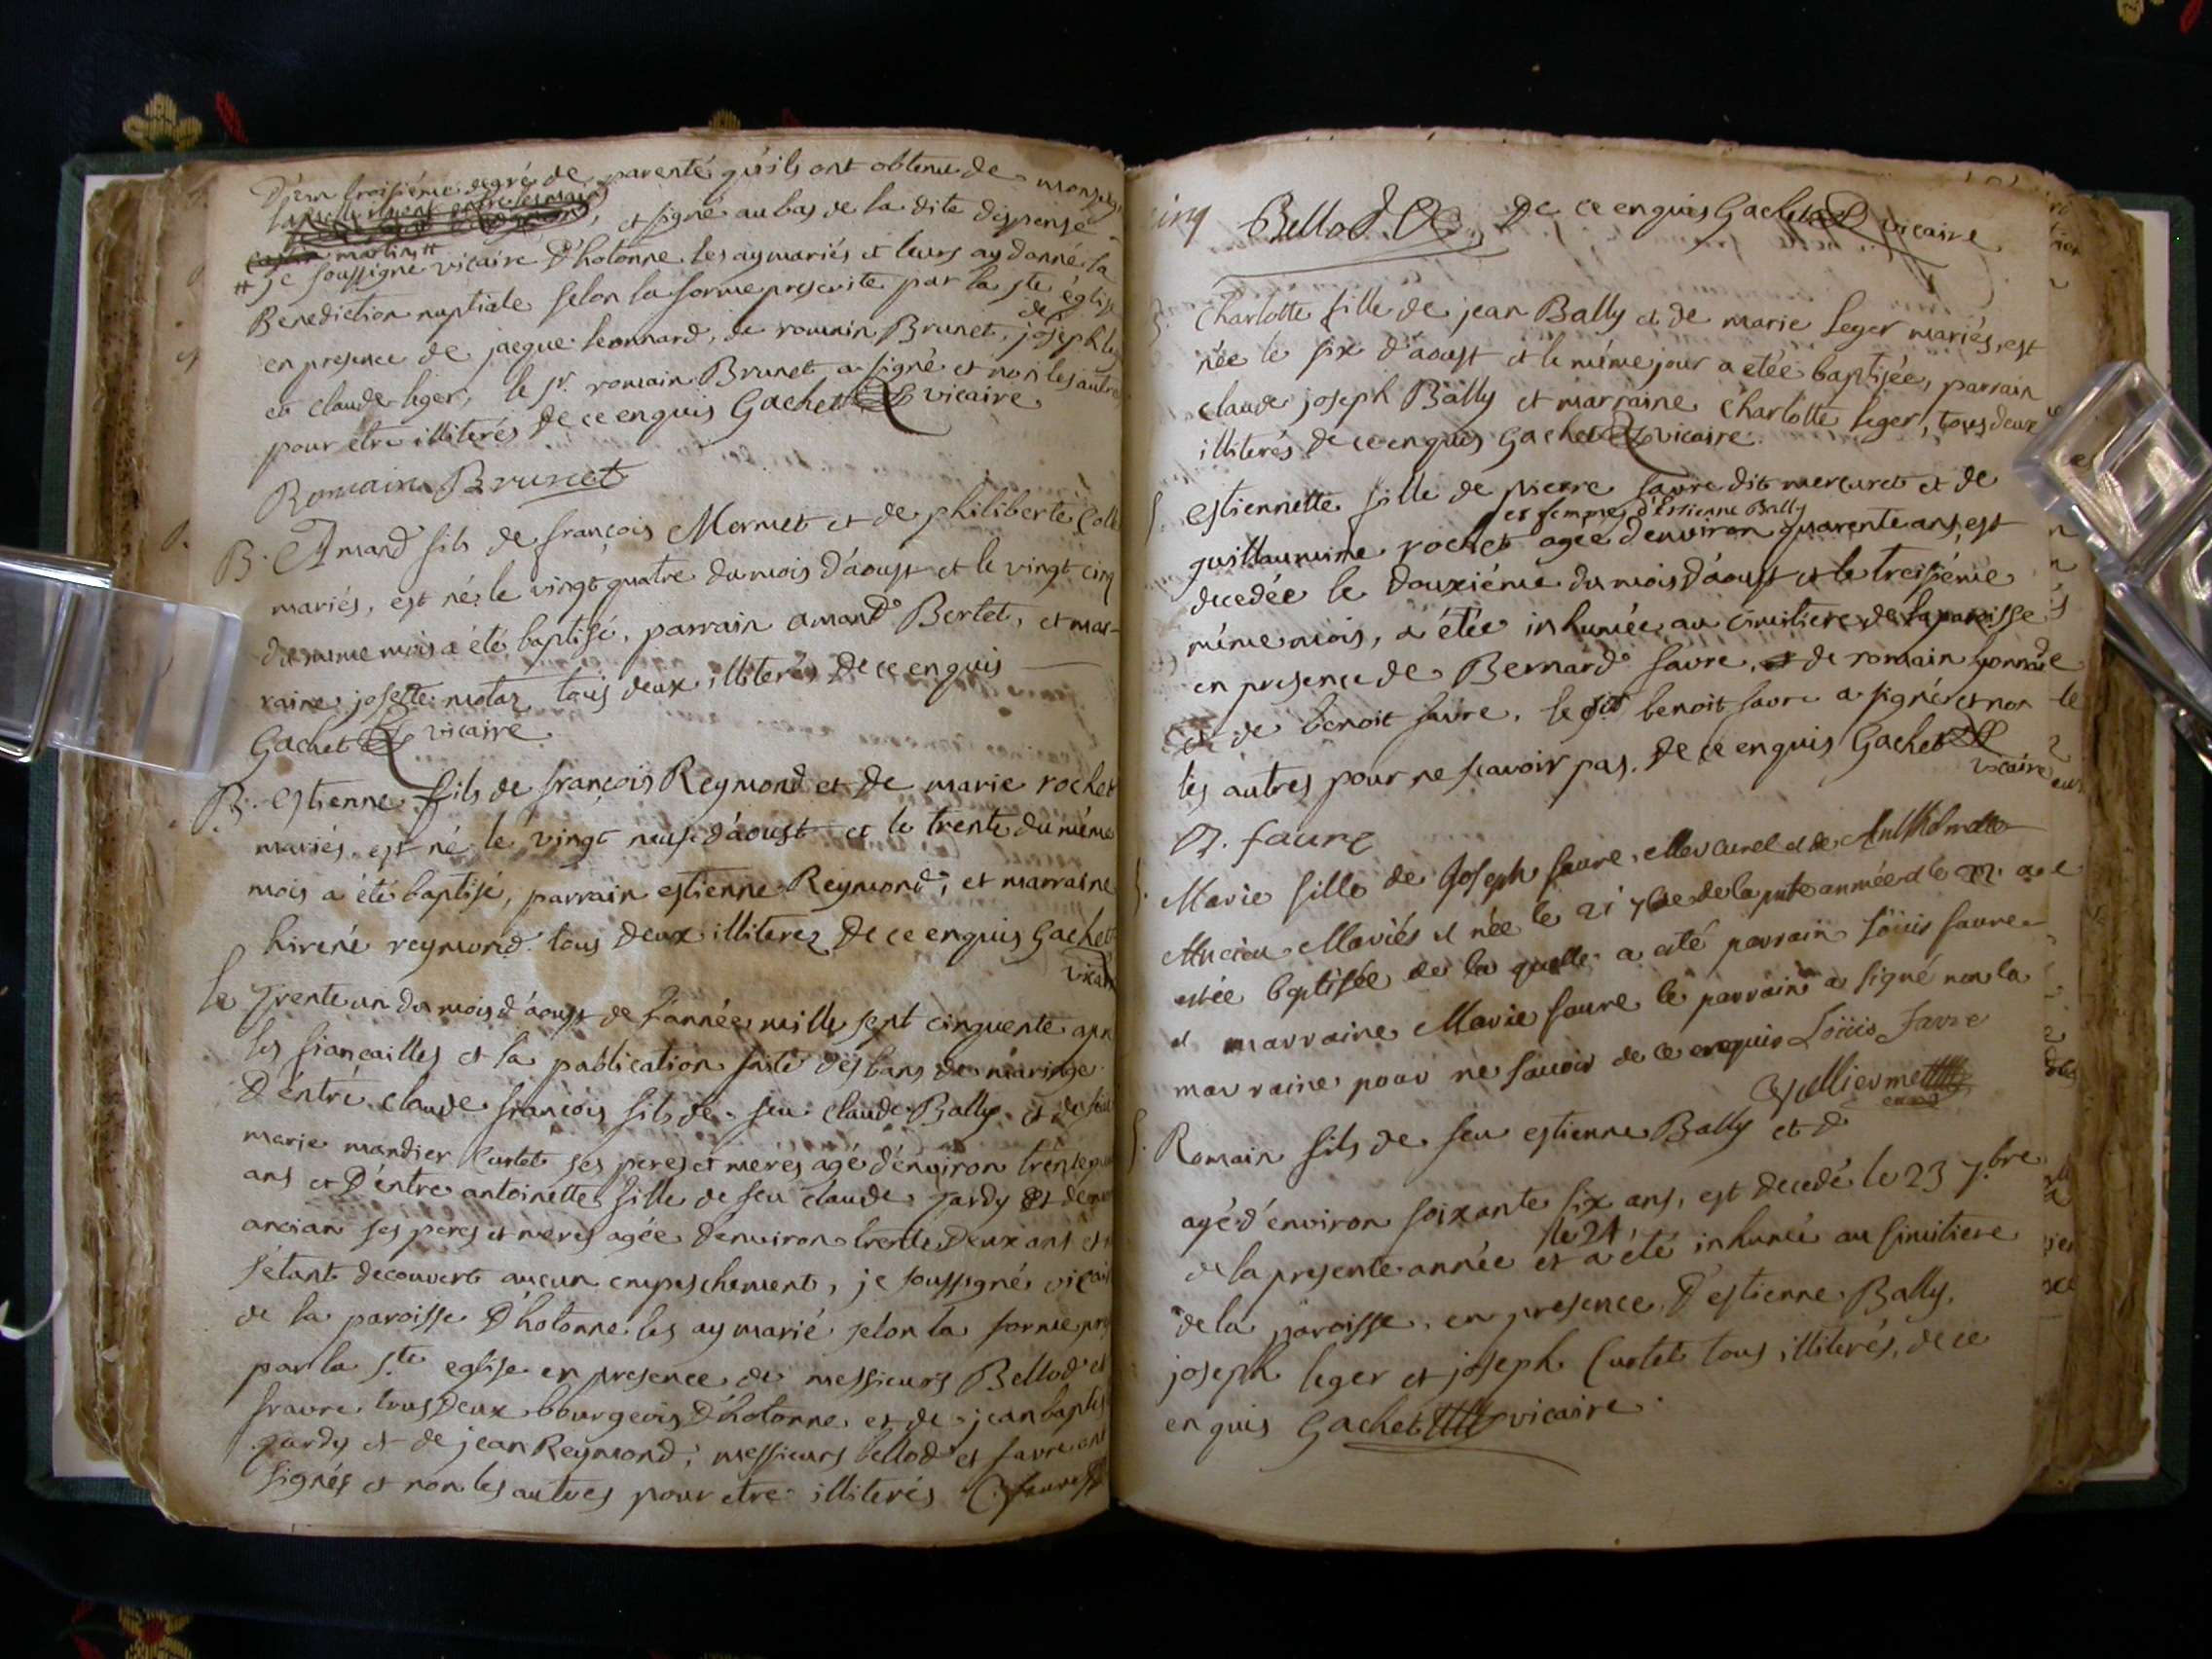 D'un troisiéme degré de parenté qu'ils ont obtenu de
et signé au bas de la dite dispense
martin #
# je soussigné vicaire D'hotonne les ay mariés et leurs ay donné la
Benediction nuptiale selon la forme prescrite par la ste église
en presence de jacque leonnard, de romain Brunet, de joseph
et claude leger, le sr. romain Brunet a signé et non les autres
pour etre illiterés De ce enquis Gachet vicaire
Romain Brunet
B. Amand fils de françois Mermet et de philiberte
mariés, est né le vingt quatre du mois d'áoust et le vingt cinq
du meme mois a été baptisé, parrain amand Bertet, et mar-
raine josette motaz tous deux illiterés De ce enquis
Gachet vicaire
B. estienne fils de françois Reymond et de marie rochet
mariés est né le vingt neuf d'áoust et le trente du méme
mois a été baptisé, parrain estienne Reymond, et marraine
hirené reymond tous deux illiterez De ce enquis Gachet
vicair
le trente un du mois d'áoust de l'année mille sept cinquente apr
les fiançailles et la publication faite des bans de máriage
D'éntre claude françois fils de feu claude Bally et de feue
marie mandier Curtet ses peres et meres agé d'énviron trente
ans et D'éntre antoinette fille de feu claude jardy et de
ancian ses peres et meres agée d'énviron trente Deux ans et
s'étant decouvert aucun empeschement, je soussigné vicair
de la paroisse D'hotonne les ay marié selon la forme
par la ste. eglise en presence de messieurs Bellod et
fravre tous Deux bourgeois D'hotonne et de jean baptis
jardy et de jean Reymond; messieurs bellod et favre ont
signés et non les autres pour etre illiterés C. favre
Bellod De ce enquis Gachet vicaire
Charlotte fille de jean Bally et de marie leger mariés, est
née le six d'áoust et le méme jour a etée baptisée, parrain
claude joseph Bally et marraine Charlotte leger, tous deux
illiterés de ce enquis Gachet vicaire
estiennette fille de pierre favre dit mercuret et de
et femme d'Estienne Bally
guillaumine rochet agée d'environ quarente ans, est
decedée le Douxiéme du mois D'áoust et le treisiéme
méme mois, a étée inhumée au cimitiere de la paroisse
en presence de Bernard favre, de romain
et de benoit favre, le dit benoit favre a signé et non
les autres pour ne scavoir pas. De ce enquis Gachet
vicaire
B. faure
Marie fille de Joseph favre Mercuret et de Anthelmette
Ancian Mariés et née le 21 7bre de la pnte année et le 22 a
estée baptisée de la quelle a esté parrain Loüis favre
et marraine Marie favre le parrain a signé non la
marraine pour ne savoir de ce enquis Loüis Favre
Romain fils de feu estienne Bally et d
agé d'énviron soixante six ans, est decedé le 23 7.bre
le 24
de la presente année et a été inhumé au simitiere
de la paroisse, en presence D'estienne Bally,
joseph leger et joseph Curtet tous illiterés, de ce
enquis Gachet vicaire.